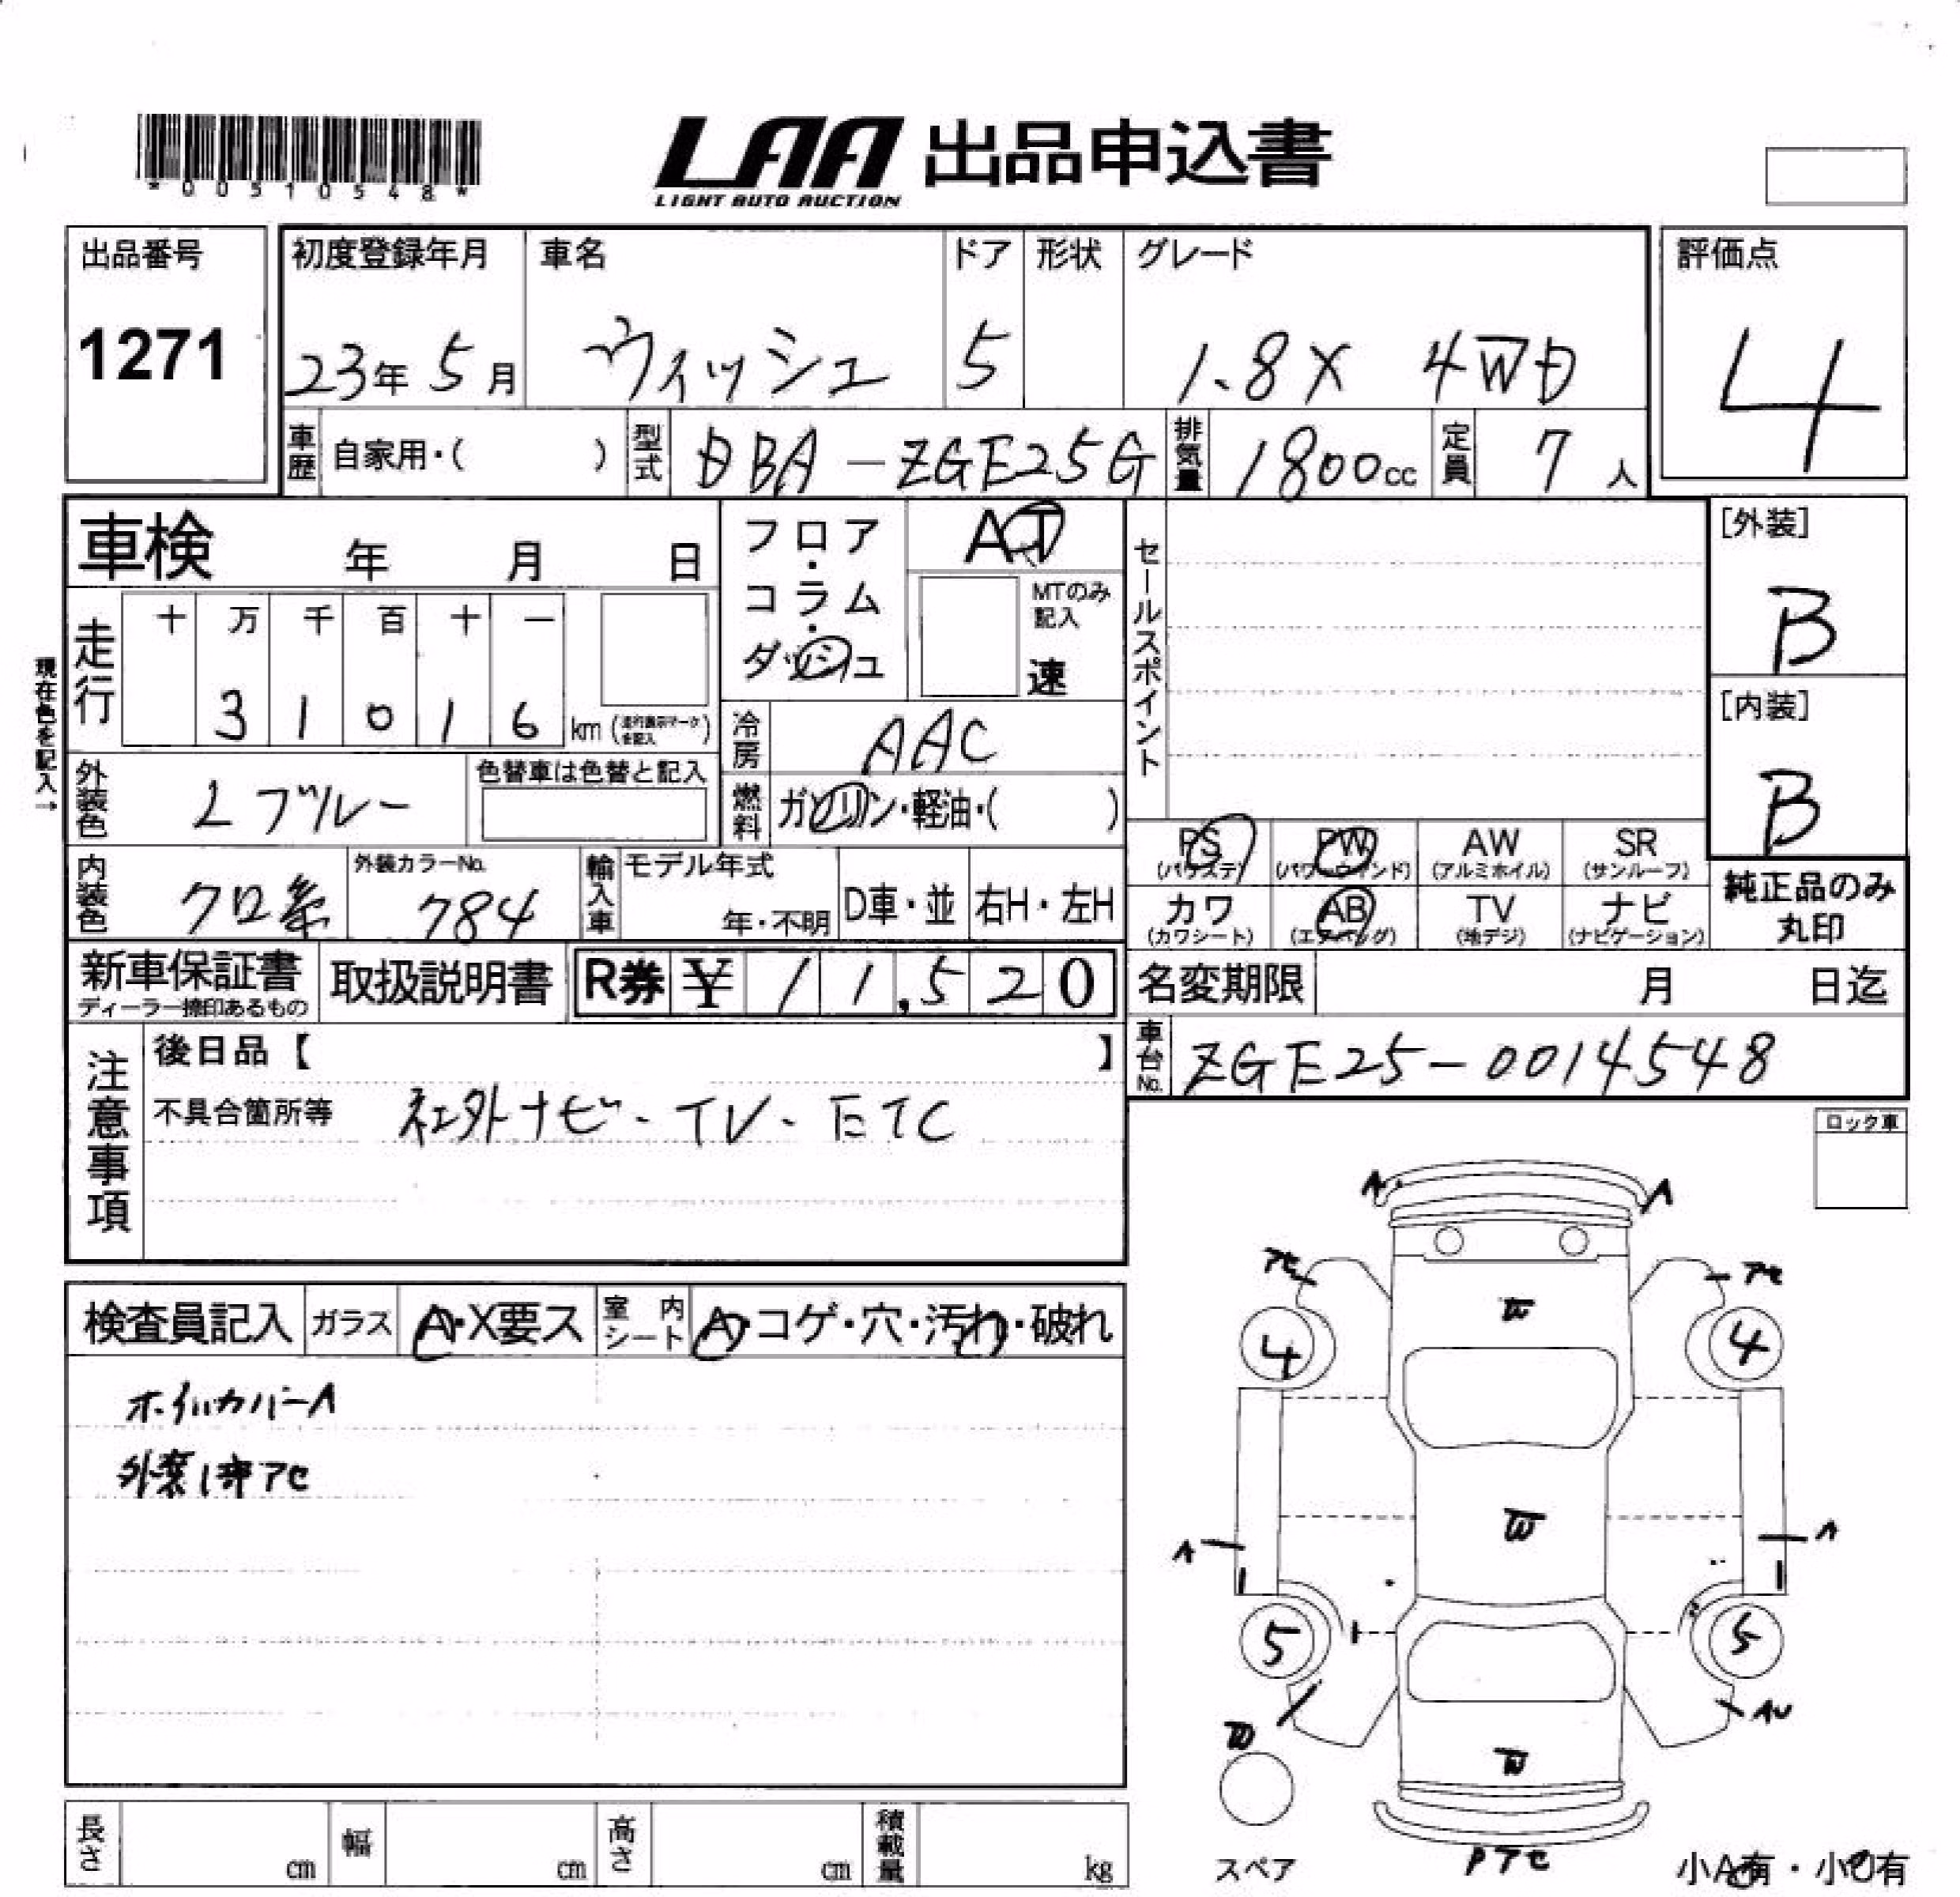 *00510548*
LAA 出品申込書
LIGHT AUTO AUCTION
出品番号
1271
初度登録年月
23年 5月
車名
ヴィッシュ
ドア
5
形状
グレード
1.8X 4WD
評価点
4
車歴
自家用・( )
型式
DBA-ZGE25G
排気量
1800cc
定員
7人
車検 年 月 日
フロア・コラム・ダッシュ
AT
MTのみ記入
速
セールスポイント
[外装]
B
[内装]
B
現在色を記入→
走行
十 万 千 百 十 一
3 1 0 1 6 km
冷房
AAC
外装色
Lブルー
色替車は色替と記入
燃料
ガソリン・軽油・( )
内装色
クロ系
外装カラーNo.
784
輸入車
モデル年式
年・不明
D車・並
右H・左H
PS (パワステ)
PW (パワーウィンド)
AW (アルミホイル)
SR (サンルーフ)
カワ (カワシート)
AB (エアバッグ)
TV (地デジ)
ナビ (ナビゲーション)
純正品のみ
丸印
新車保証書
ディーラー捺印あるもの
取扱説明書
R券 ¥ 11,520
名変期限 月 日迄
車台No.
ZGE25-0014548
注意事項
後日品【 】
不具合箇所等 社外ナビ、TV、ETC
ロック車
検査員記入
ガラス
A・X要ス
室内シート
A・コゲ・穴・汚れ・破れ
ホイルカバーA
A A
アセ アセ
W
4 4
W
A A
5 5
AU
W
W
Pアセ
スペア
小A有・小U有
長さ cm
幅 cm
高さ cm
積載量 kg